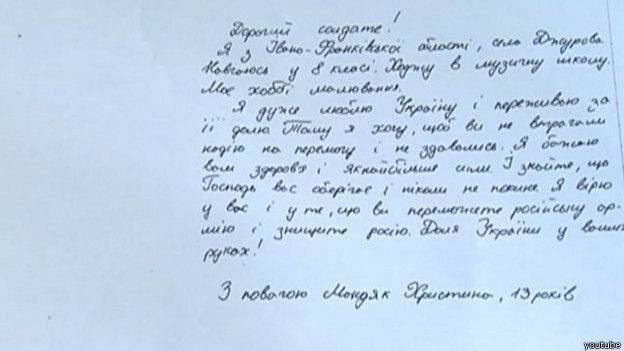 Дорогий солдате!
Я з Івано-Франківської області, село Джурова.
Навчаюсь у 8 класі. Ходжу в музичну школу.
Моє хоббі малювання.
Я дуже люблю Україну і переживаю за
її долю. Тому я хочу, щоб ви не втрачали
надію на перемогу і не здавались. Я бажаю
вам здоров'я і якнайбільше сили. І знайте, що
Господь вас оберігає і ніколи не покине. Я вірю
у вас і у те, що ви переможете російську ар-
мію і знищите росію. Доля України у ваших
руках!
З повагою Мондяк Христина, 13 років
youtube